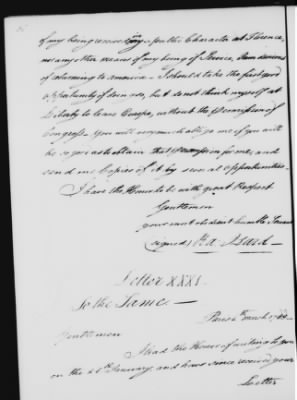 of my being received in the Character at Florence,
nor any other means of my being of Service, I am desirous
of returning to America. I should take the first good
opportunity of doing so, but do not think myself at
Liberty to leave Europe, without the Permission of
Congress. You will very much oblige me if you will
be so good as to obtain that Permission for me, and
send me Copies of it by several opportunities.
I have the Honour to be with great Respect
Gentlemen
your most obedient humble Servant
(signed) Ra. Izard
Letter XXXI.
To the Same
Paris
Gentlemen
I had the Honour of writing to you
on the 28th January, and have since received your
Letter